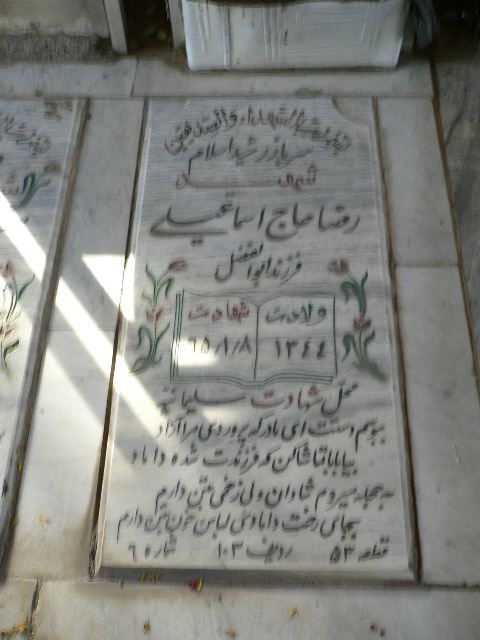 سرباز رشید اسلام
شهید
رضا حاج اسماعیلی
فرزند ابوالفضل
ولادت
۱۳۴٤
شهادت
٦۵/۱/۸
محل شهادت سلیمانیه
ببوسم دستت ای مادر که پروردی مرا آزاد
بیا بابا تماشا کن که فرزندت شده داماد
به حجله میروم شادان ولی زخمی بتن دارم
بجای رخت دامادی لباس خون بتن دارم
قطعه ۵۳ ردیف ۱۰۳ شماره ٦